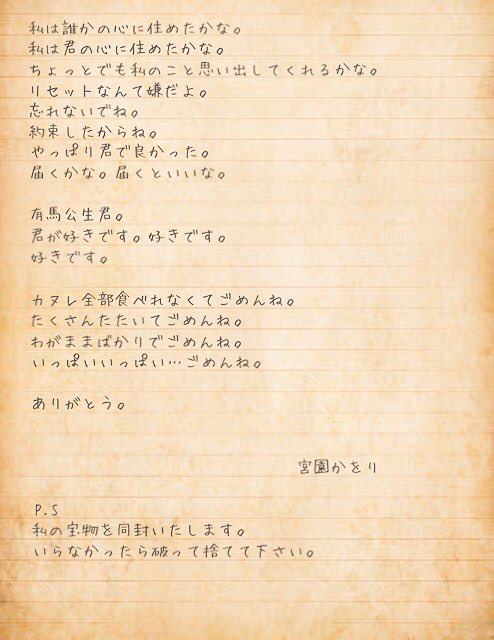 私は誰かの心に住めたかな。
私は君の心に住めたかな。
ちょっとでも私のこと思い出してくれるかな。
リセットなんて嫌だよ。
忘れないでね。
約束したからね。
やっぱり君で良かった。
届くかな。届くといいな。
有馬公生君。
君が好きです。好きです。
好きです。
カヌレ全部食べれなくてごめんね。
たくさんたたいてごめんね。
わがままばかりでごめんね。
いっぱいいっぱい…ごめんね。
ありがとう。
宮園かをり
P.S
私の宝物を同封いたします。
いらなかったら破って捨てて下さい。